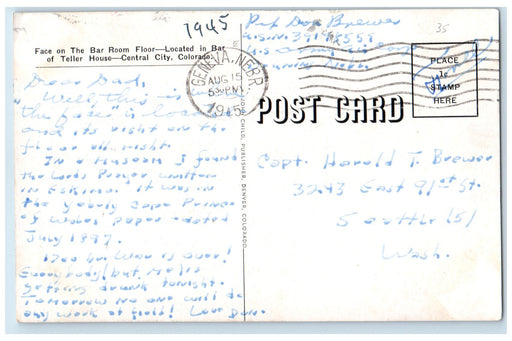 1945
35
Face on The Bar Room Floor—Located in Bar
of Teller House—Central City, Colorado.
Pvt Don Brewer
A.S.N.
GENEVA, NEBR.
AUG 15
PM
1945
PLACE
STAMP
HERE
POST CARD
CHILD, PUBLISHER, DENVER, COLORADO
Dear Dad,
Well, this is
"the face" is
and its right on the
floor all right.
In a Museum I found
the Lords Prayer written
in Eskimo. It was in
the yearly Cape Prince
of Wales paper dated
July 1897.
War is over!
Everybody but me is
getting drunk tonight.
Tomorrow no one will do
any work at field! Love Don.
Capt. Harold T. Brewer
3243 East 91st St.
Seattle (5)
Wash.